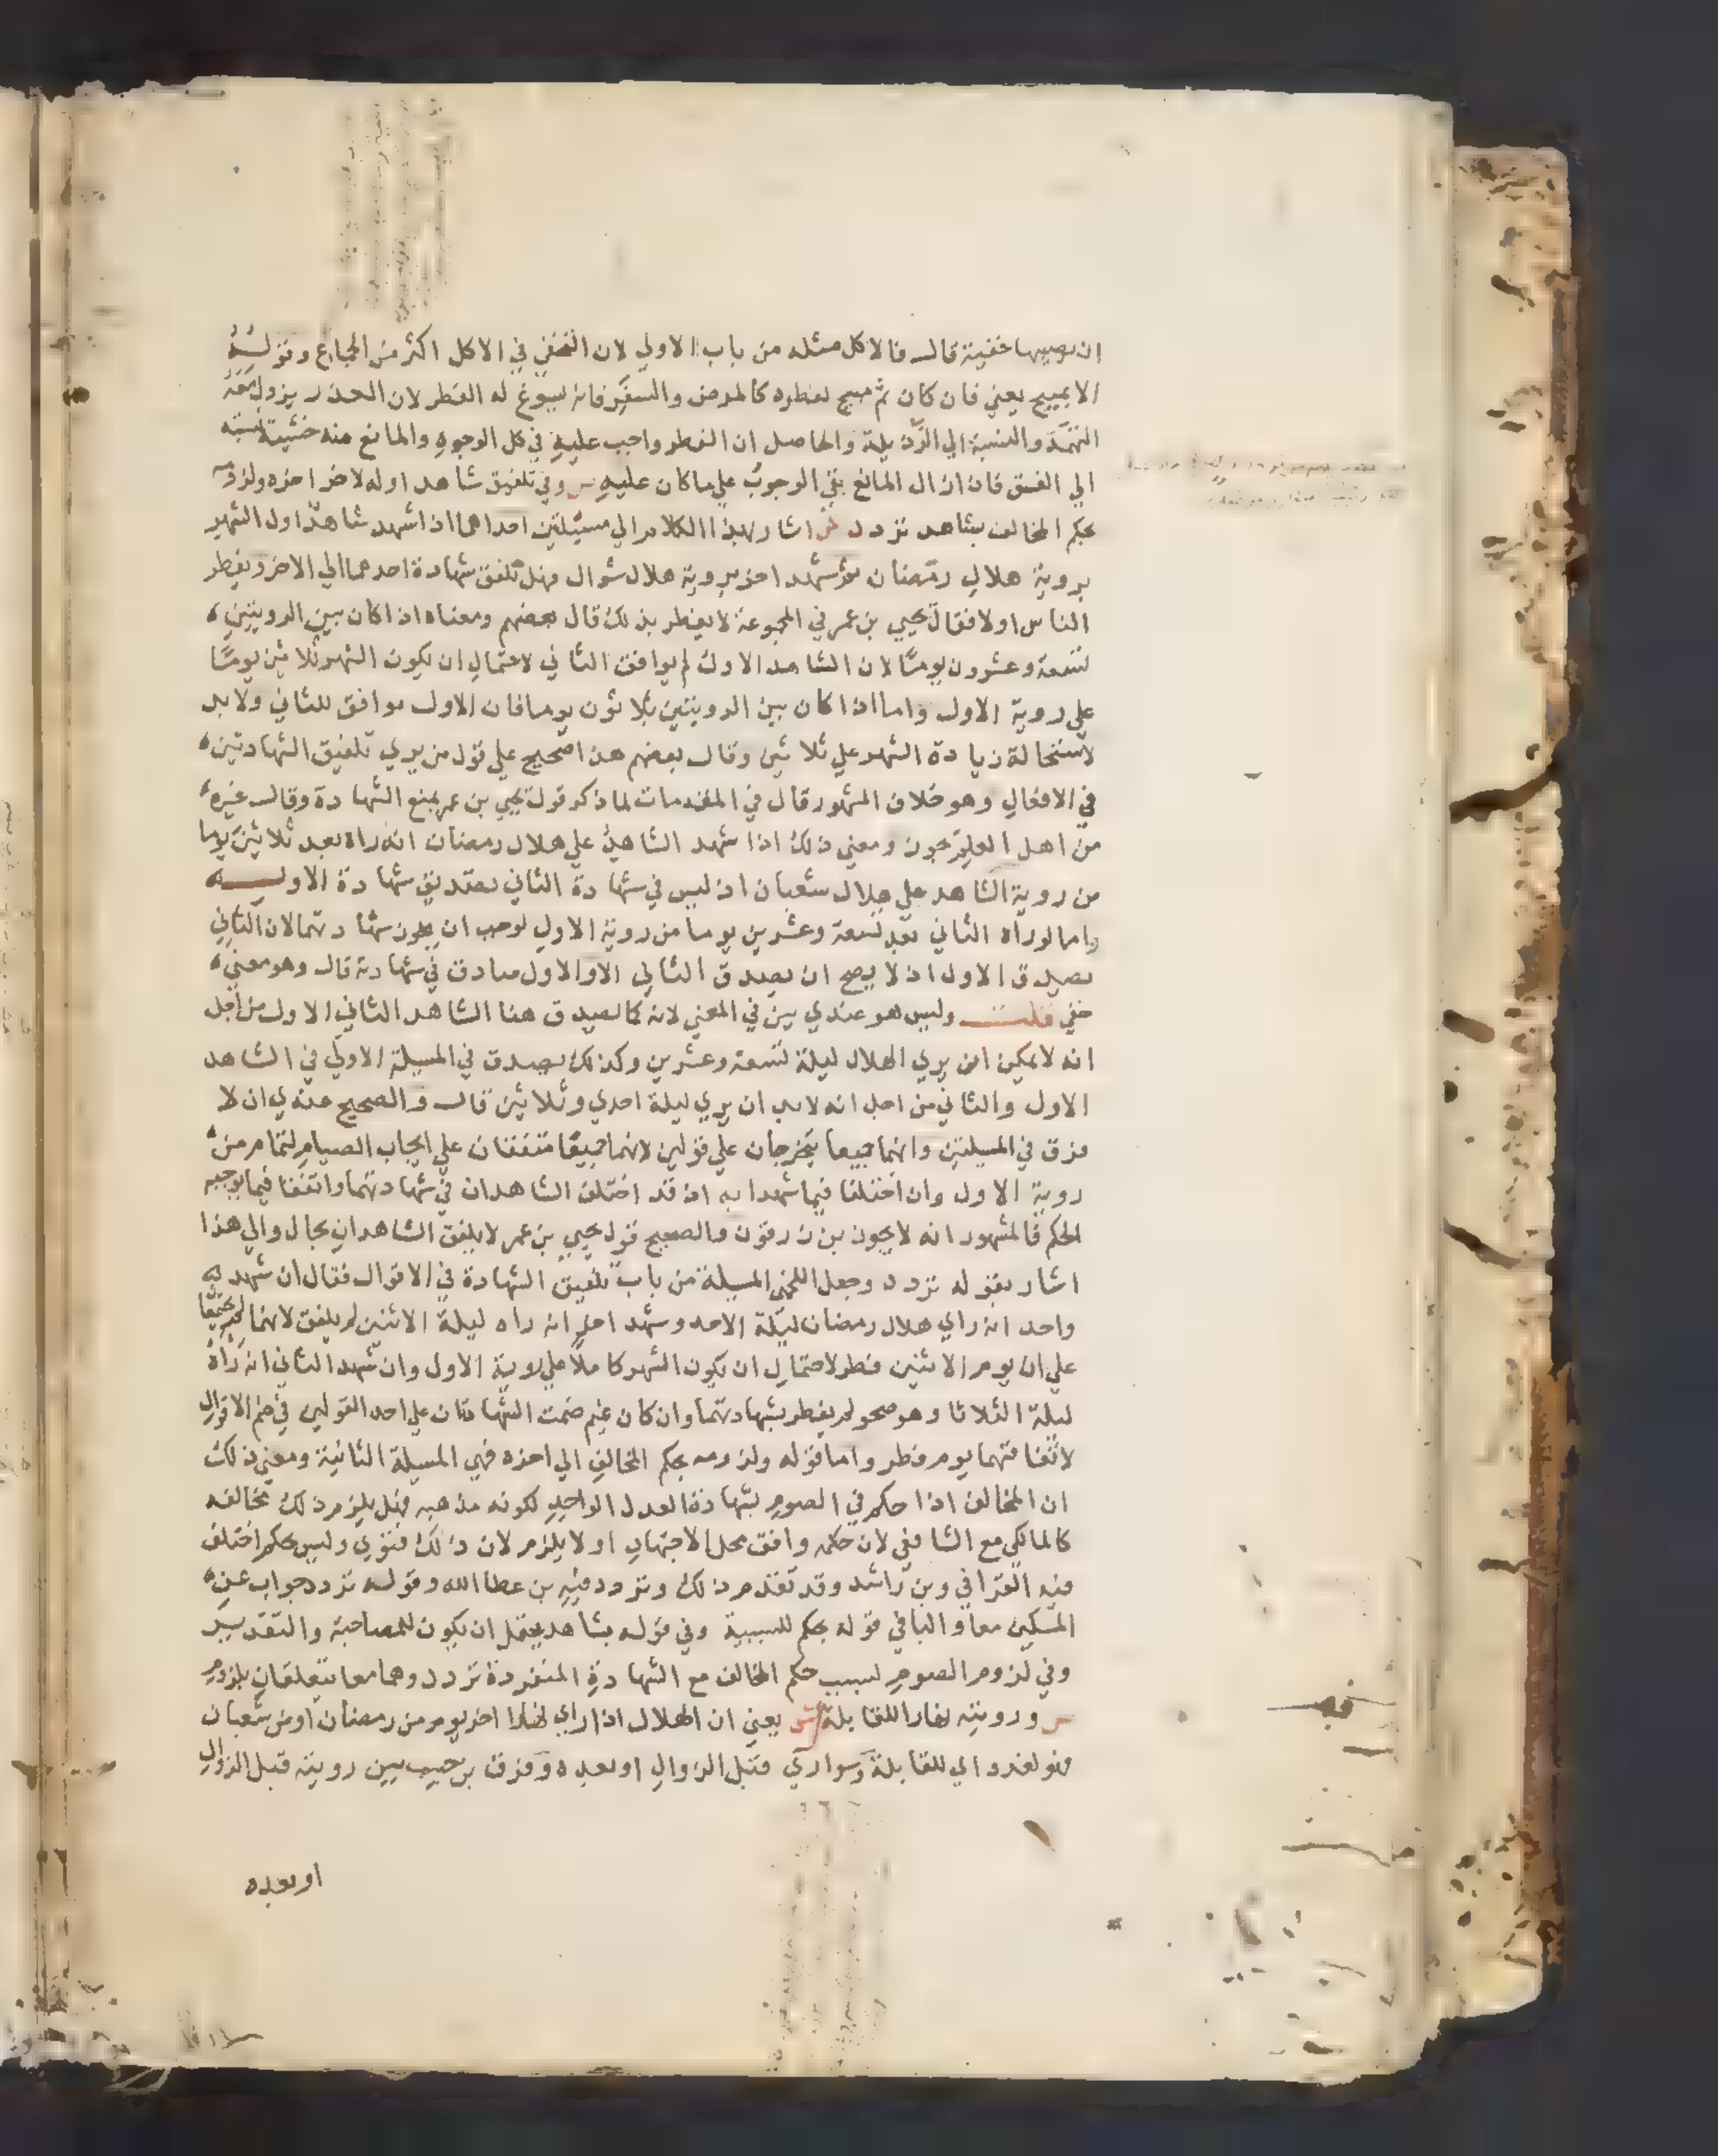 ان يصيبها خفية قال فالاكل مثله من باب الاولي لان التخفي في الاكل اكثر من الجماع وقوله
الا بمبيح يعني فان كان ثم مبيح لفطره كالمرض والسفر فانه يسوغ له الفطر لان العذر يزول معه
التهمة والنسبة الي الرذيلة والحاصل ان الفطر واجب عليه في كل الوجوه والمانع منه خشية نسبته
الي الفسق فاذا زال المانع بقي الوجوب علي ما كان عليه ص وفي تلفيق شاهد اوله لاخر اخره ولزومه
بحكم المخالف بشاهد تردد ش اشار بهذا الكلام الي مسيلتين احداهما اذا شهد شاهد اول الشهر
بروية هلال رمضان ثم شهد اخر بروية هلال شوال فهل تلفق شهادة احدهما الي الاخر ويفطر
الناس اولا فقال يحيي بن عمر في المجموعة لا يفطر بذلك قال بعضهم ومعناه اذا كان بين الرويتين
تسعة وعشرون يوما لان الشاهد الاول لم يوافق الثاني لاحتمال ان يكون الشهر ثلاثين يوما
علي روية الاول واما اذا كان بين الرويتين ثلاثون يوما فان الاول موافق للثاني ولا بد
لاستحالة زيادة الشهر علي ثلاثين وقال بعضهم هذا صحيح علي قول من يري تلفيق الشهادتين
في الافعال وهو خلاف المشهور قال في المقدمات لما ذكر قول يحيي بن عمر بمنع الشهادة وقال غيره
من اهل العلم يجوز ومعني ذلك اذا شهد الشاهد علي هلال رمضان انه راه بعد ثلاثين يوما
من روية الشاهد علي هلال شعبان اذ ليس في شهادة الثاني تصديق شهادة الاول
واما لو راه الثاني بعد تسعة وعشرين يوما من روية الاول لوجب ان يجوز شهادتهما لان الثاني
يصدق الاول اذ لا يصح ان يصدق الثاني الا والاول صادق في شهادته قال وهو معني
خفي قلت وليس هو عندي بين في المعني لانه كما يصدق هنا الشاهد الثاني الاول من اجل
انه لا يمكن ان يري الهلال ليلة تسعة وعشرين وكذلك يصدق في المسيلة الاولي في الشاهد
الاول والثاني من اجل انه لا بد ان يري ليلة احدي وثلاثين قال والصحيح عندي ان لا
فرق في المسيلتين وانهما جميعا يتخرجان علي قولين لانهما جميعا متفقان علي ايجاب الصيام لتمام من
روية الاول وان اختلفا فيما شهدا به اذ قد اختلف الشاهدان في شهادتهما واتفقا فيما يوجبه
الحكم فالمشهور انه لا يجوز بن زرقون والصحيح قول يحيي بن عمر لا يلفق الشاهدان بحال والي هذا
اشار بقوله تردد وجعل اللخمي المسيلة من باب تلفيق الشهادة في الاقوال فقال ان شهد به
واحد انه راي هلال رمضان ليلة الاحد وشهد اخر انه راه ليلة الاثنين لم يلفق لانهما لم يجتمعا
علي ان يوم الاثنين فطر لاحتمال ان يكون الشهر كاملا علي روية الاول وان شهد الثاني انه راه
ليلة الثلاثا وهو صحو لم يفطر بشهادتهما وان كان غيم ضمت الشهادتان علي احد القولين في ضم الاقوال
لاتفاقهما يوم فطر واما قوله ولزومه بحكم المخالف الي اخره فهي المسيلة الثانية ومعني ذلك
ان المخالف اذا حكم في الصوم بشهادة العدل الواحد لكونه مذهبه فهل يلزم ذلك مخالفه
كالمالكي مع الشافعي لان حكمه وافق محل الاجتهاد او لا يلزم لان ذلك فتوي وليس بحكم اختلف
فيه القرافي وبن راشد وقد تقدم ذلك وتردد فيه بن عطا الله وقوله تردد جواب عن
المسلتين معا والبا في قوله بحكم للسببية وفي قوله بشاهد يحتمل ان يكون للمصاحبة والتقدير
وفي لزوم الصوم لسبب حكم المخالف مع الشهادة المنفردة تردد وهما معا يتعلقان بلزوم
ص ورويته نهارا للقابلة ش يعني ان الهلال اذا راي نهارا اخر يوم من رمضان او من شعبان
فهو لغد واي للقابلة وسوا ري قبل الزوال او بعده وفرق بن حبيب بين رويته قبل الزوال
او بعده